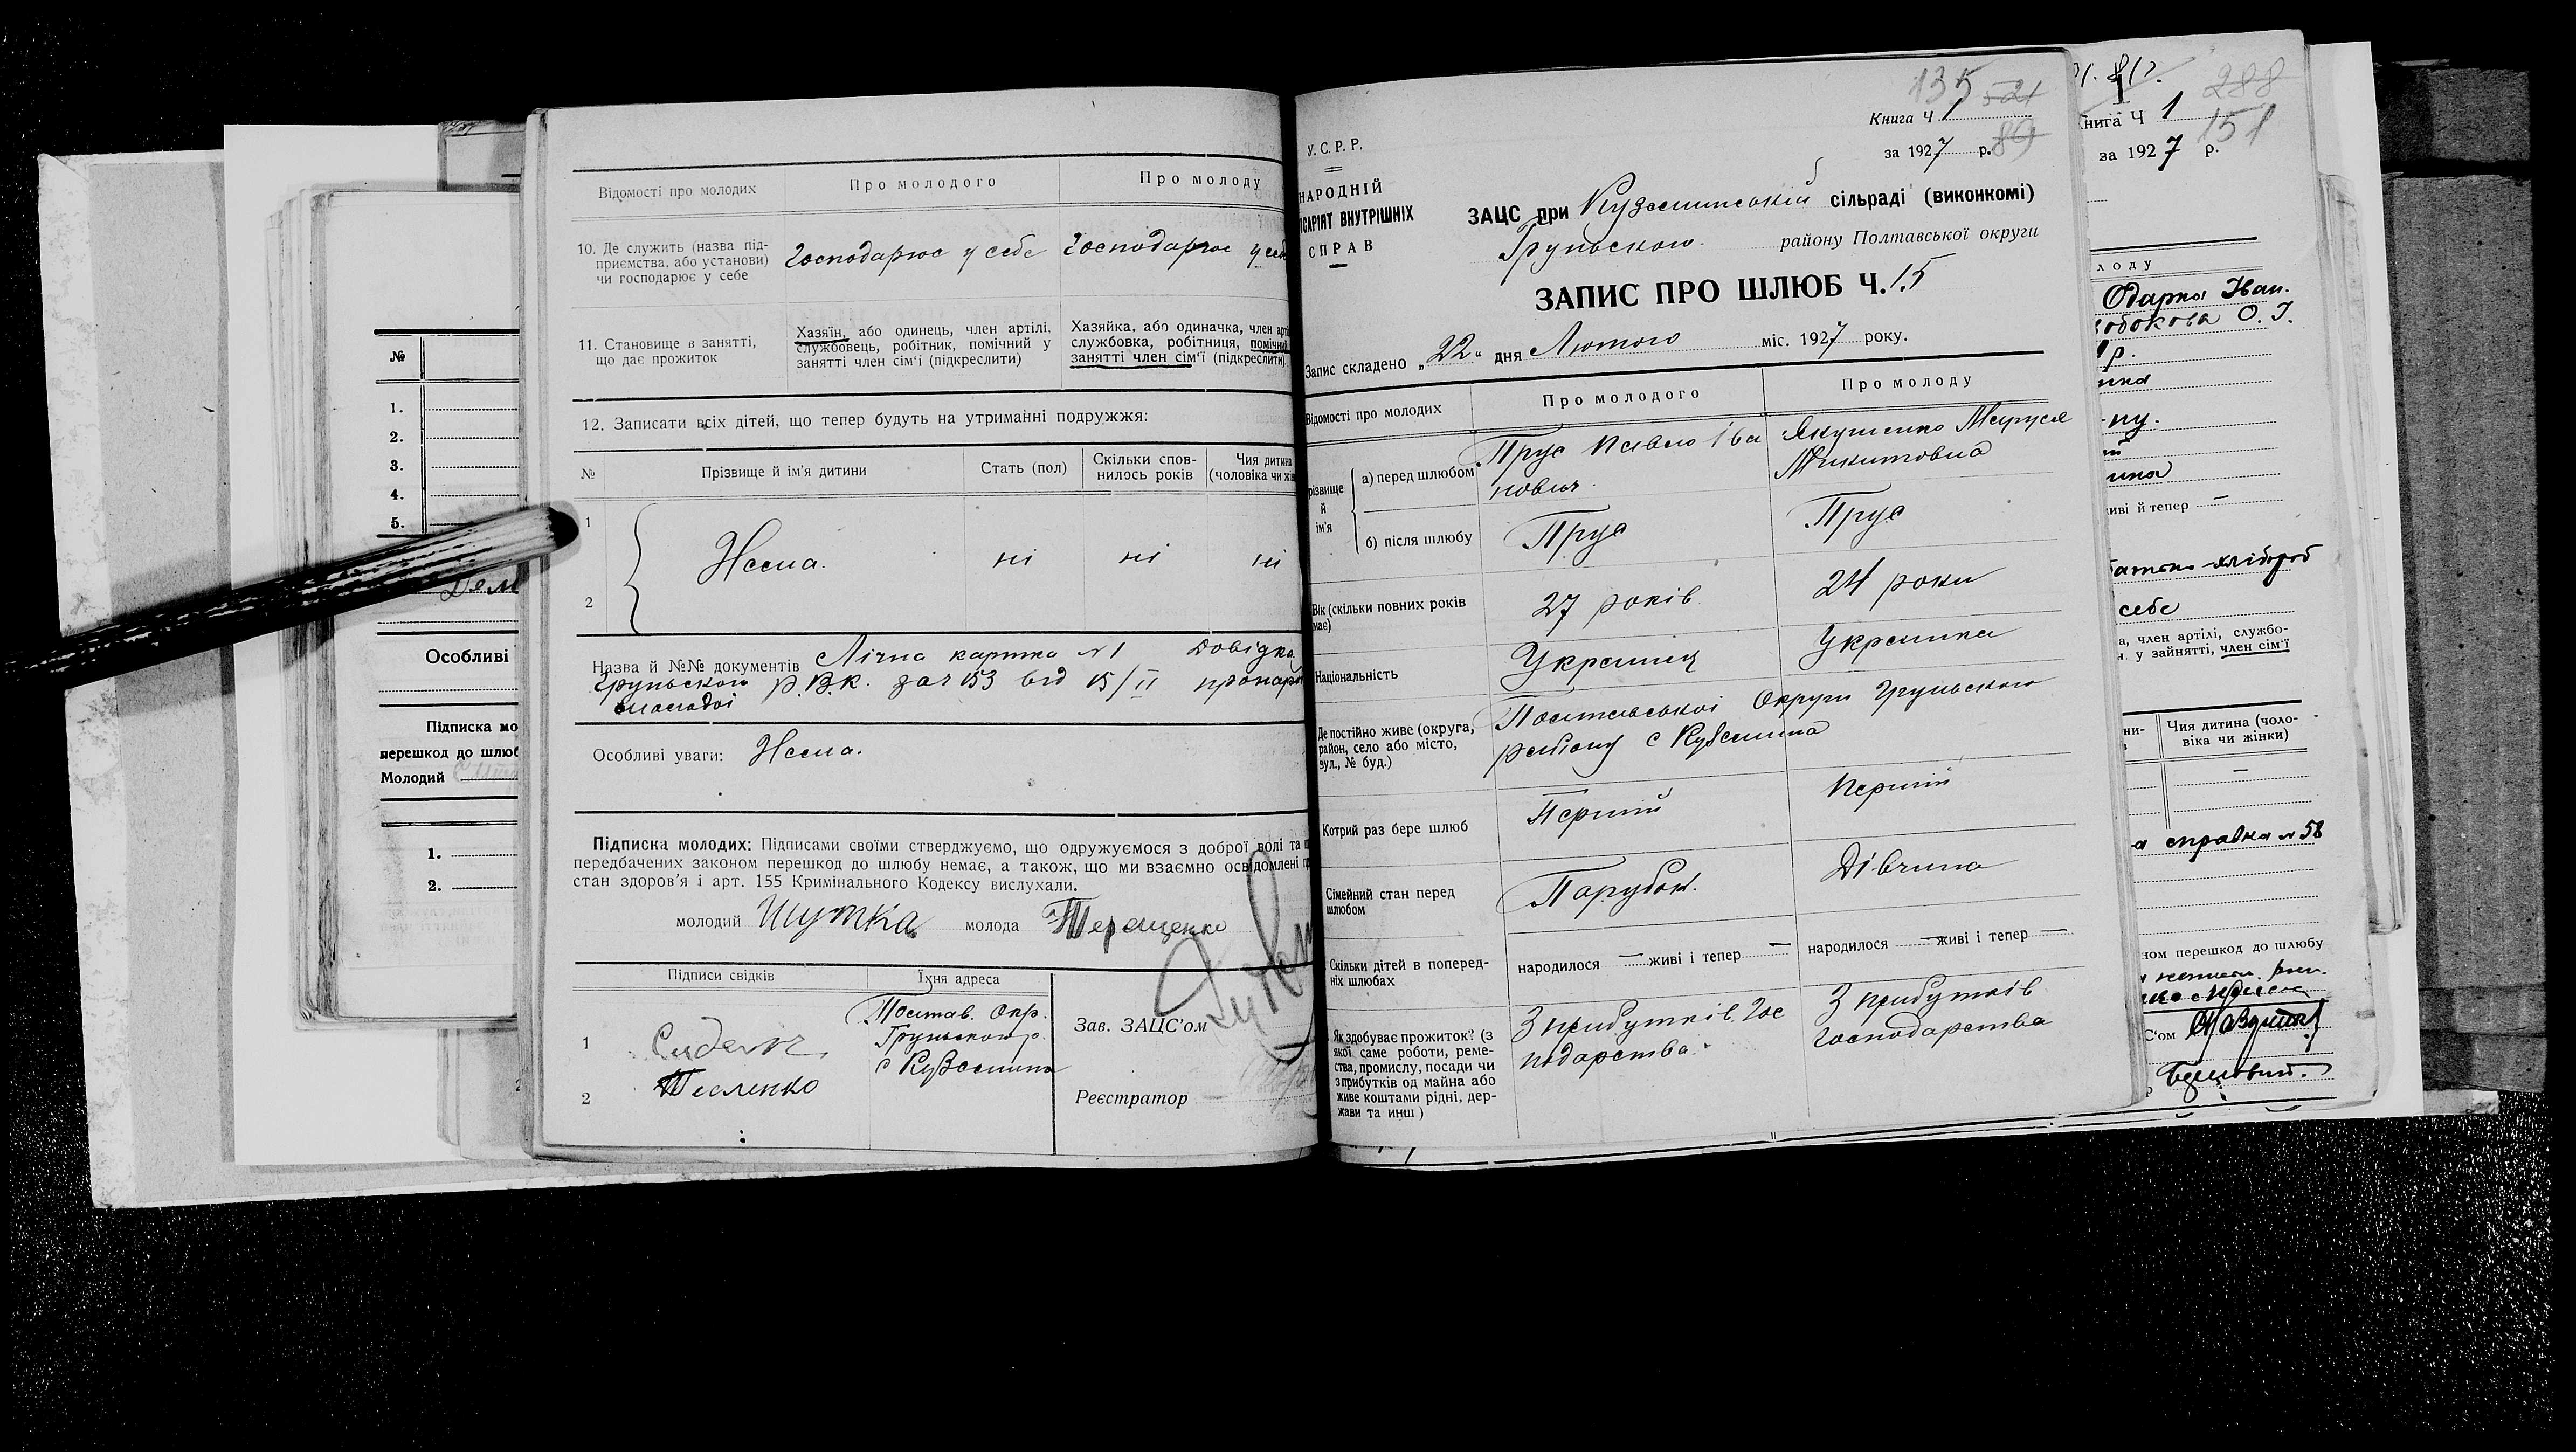 Відомості про молодих
Про молодого
Про молоду
10. Де служить (назва під-
приємства, або установи)
чи господарює у себе
Господарює у себе
Господарює у себе
11. Становище в занятті,
що дає прожиток
Хазяїн, або одинець, член артілі,
службовець, робітник, помічний у
занятті член сім'ї (підкреслити)
Хазяйка, або одиначка, член арті
службовка, робітниця, помічний
занятті член сім'ї (підкреслити)
12. Записати всіх дітей, що тепер будуть на утриманні подружжя:
№
Прізвище й ім'я дитини
Стать (пол)
Скільки спов-
нилось років
Чия дитина
(чоловіка чи жін
1
2
Нема.
ні
ні
ні
Назва й №№ документів Лічна картка №1 Довідка
Грунського Р.В.К. за ч 153 від 15/II
молодої
Особливі уваги: Нема.
Підписка молодих: Підписами своїми стверджуємо, що одружуємося з доброї волі та
передбачених законом перешкод до шлюбу немає, а також, що ми взаємно освідомлені
стан здоров'я і арт. 155 Кримінального Кодексу вислухали.
молодий Шутка молода Терещенко
Підписи свідків
Їхня адреса
1
2
Тесленко
Полтав. Окр.
Грунського р.
с Куземина
Зав. ЗАЦС'ом
Реєстратор
№
1.
2.
3.
4.
5.
Особливі
Підписка мо
перешкод до шлюб
Молодий
1.
2.
135 521
Книга Ч 1
за 1927 р. 89
У.С.Р.Р.
НАРОДНІЙ
ІСАРІЯТ ВНУТРІШНІХ
СПРАВ
ЗАЦС при Куземинській сільраді (виконкомі)
Грунського району Полтавської округи
ЗАПИС ПРО ШЛЮБ Ч. 15
Запис складено „22" дня Лютого міс. 1927 року.
Відомості про молодих
Про молодого
Про молоду
різвище
й
ім'я
а) перед шлюбом
Прус Павло Іва
нович
Якушенко Маруся
Микитовна
б) після шлюбу
Прус
Прус
Вік (скільки повних років
має)
27 років
24 роки
Національність
Українець
Українка
Де постійно живе (округа,
район, село або місто,
вул., № буд.)
Полтавської Округи Грунського
району с Куземина
Котрий раз бере шлюб
Перший
Перший
Сімейний стан перед
шлюбом
Парубок.
Дівчина
Скільки дітей в поперед-
ніх шлюбах
народилося — живі і тепер —
народилося — живі і тепер —
Як здобуває прожиток? (з
якої саме роботи, реме-
ства, промислу, посади чи
з прибутків од майна або
живе коштами рідні, дер-
жави та инш)
З прибутків Гос
подарства
З прибутків
господарства
288
нига Ч 1
151
за 1927 р.
лоду
Одарка Іван.
О. І.
живі й тепер —
себе
а, член артілі, службо-
у зайнятті, член сім'ї
Чия дитина (чоло-
віка чи жінки)
—
справка № 58
ном перешкод до шлюбу
С'ом